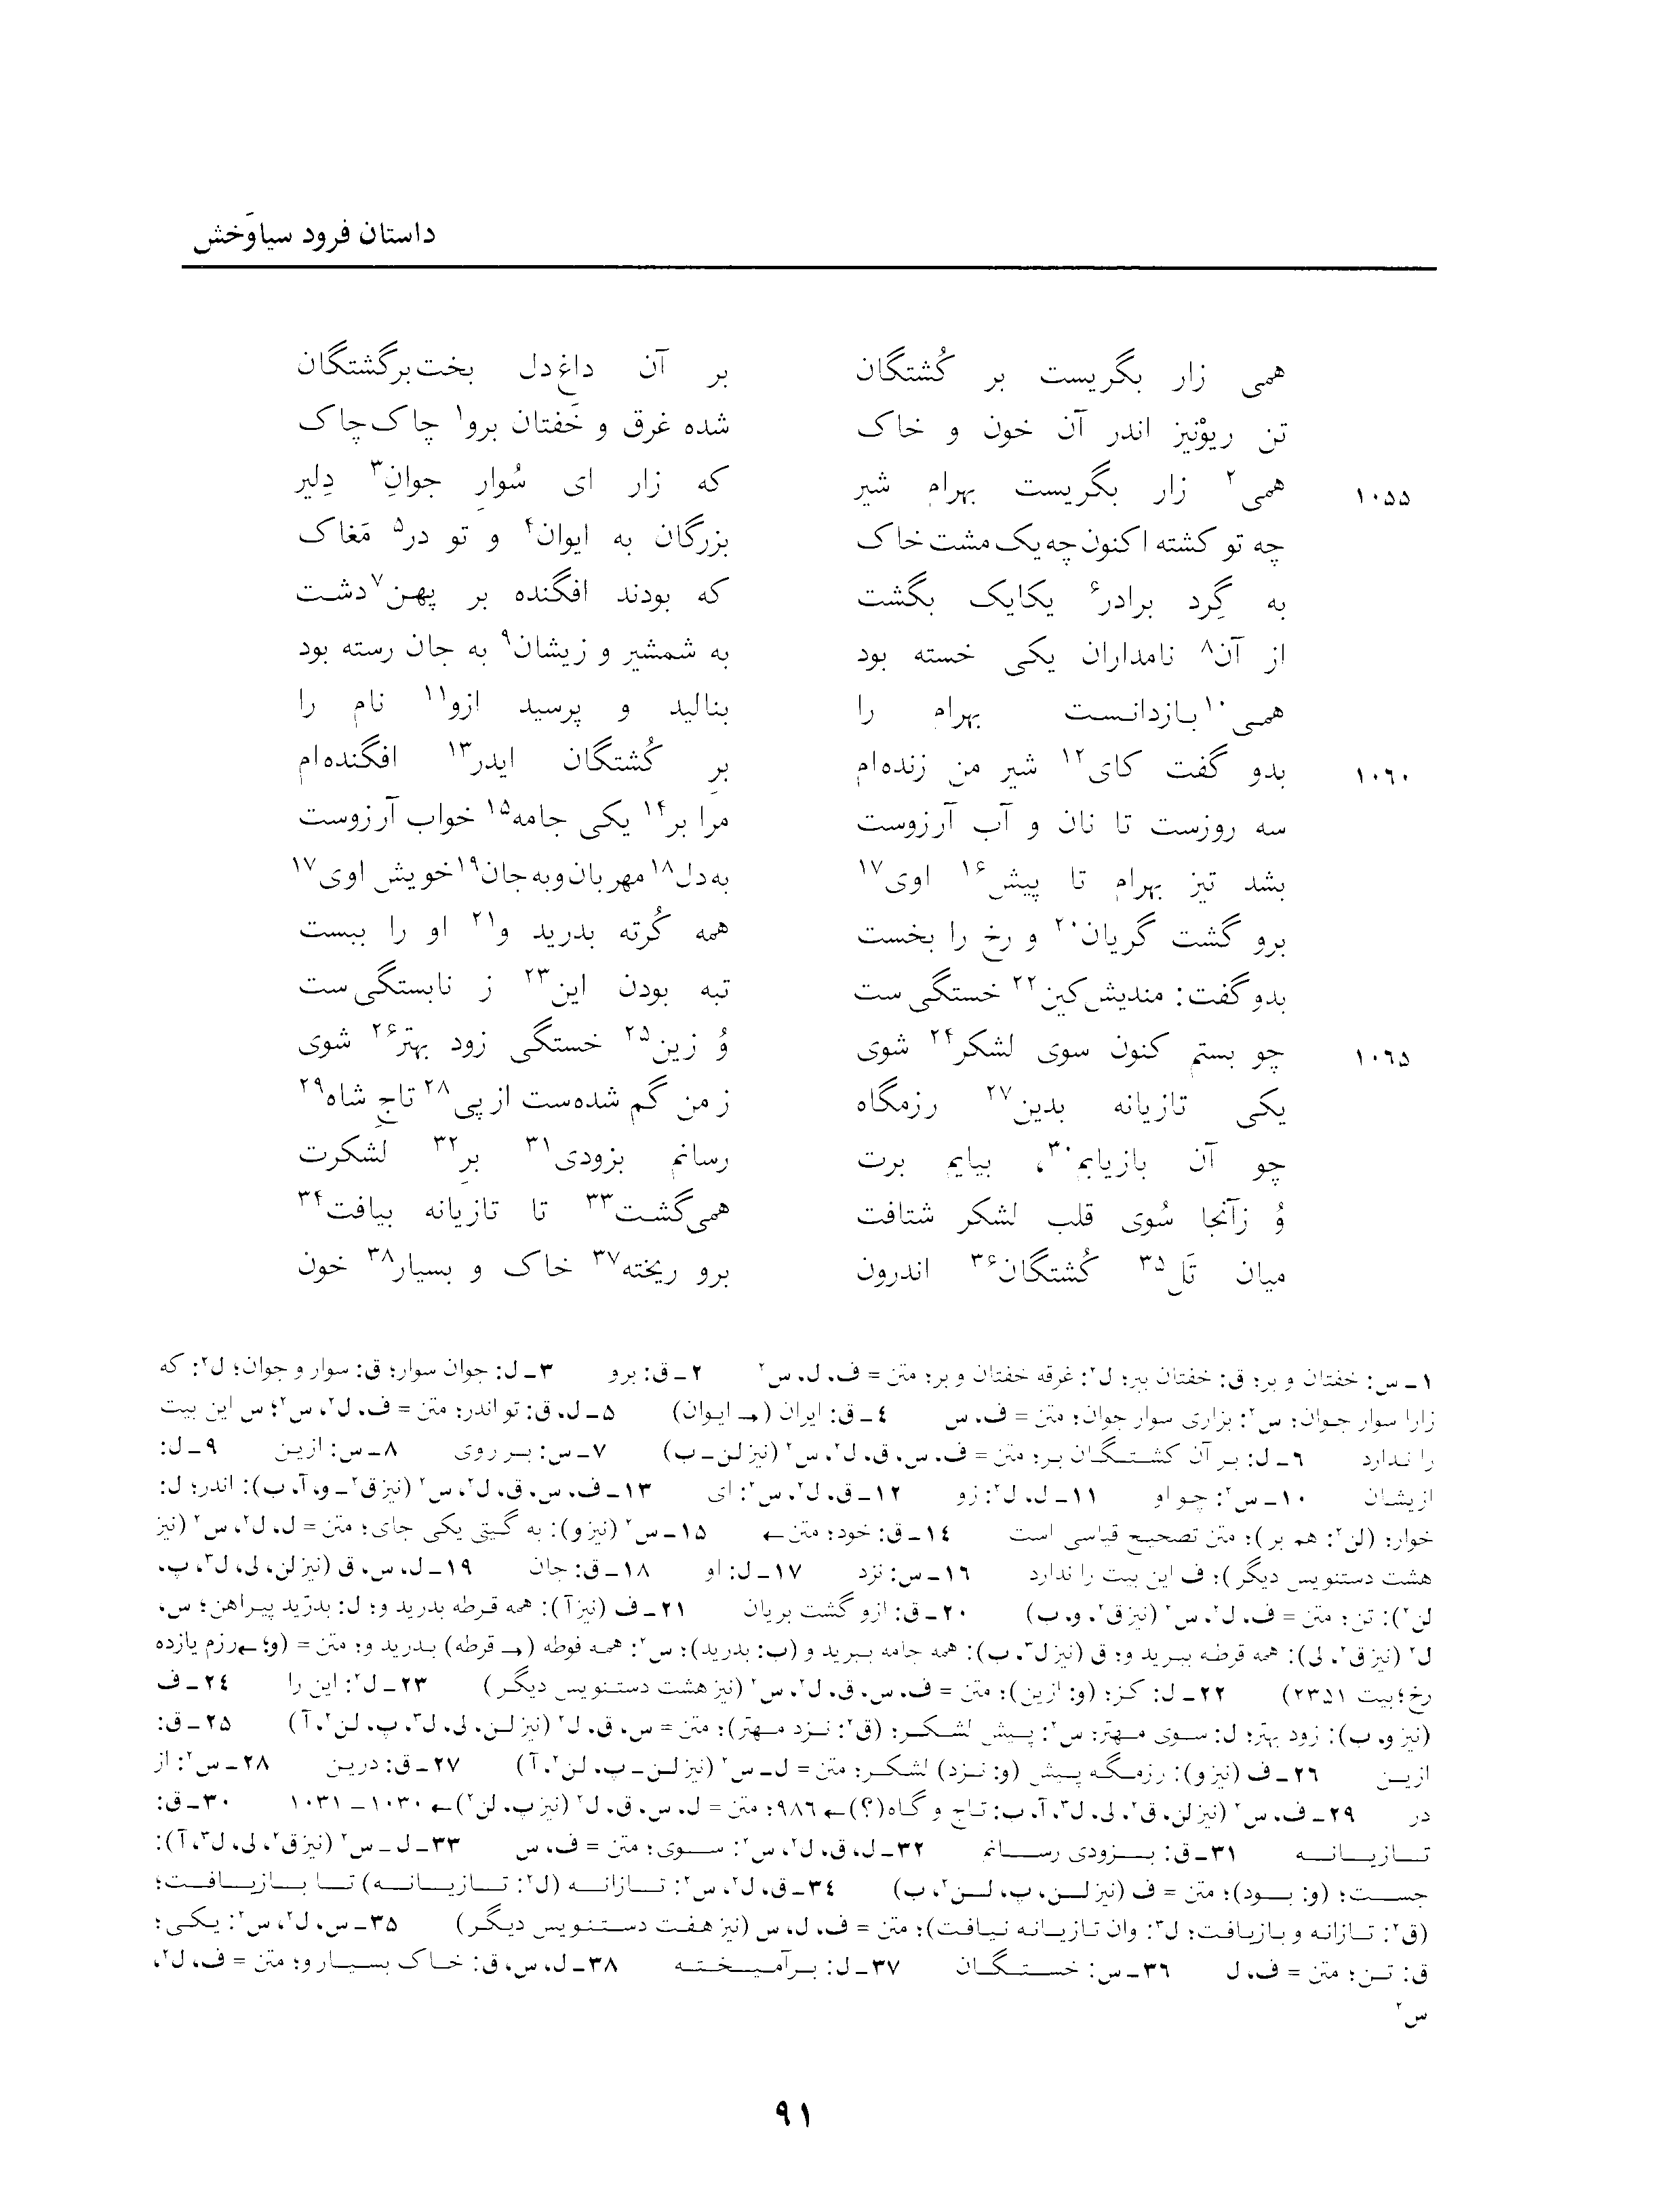 داستان فرود سیاوَخش
همی زار بگریست بر کُشتگان    بر آن داغ‌دل بخت‌برگشتگان
تن ریوْنیز اندر آن خون و خاک    شده غرق و خَفتان برو۱ چاک‌چاک
۱۰۵۵    همی۲ زار بگریست بهرام شیر    که زار ای سُوارِ جوانِ۳ دِلیر
چه تو کشته اکنون چه یک مشت خاک    بزرگان به ایوان۴ و تو در۵ مَغاک
به گِرد برادر۶ یکایک بگشت    که بودند افگنده بر پهن۷ دشت
از آن۸ نامداران یکی خسته بود    به شمشیر و زیشان۹ به جان رسته بود
همی۱۰ بازدانست بهرام را    بنالید و پرسید ازو۱۱ نام را
۱۰۶۰    بدو گفت کای۱۲ شیر من زنده‌ام    برِ کُشتگان ایدر۱۳ افگنده‌ام
سه روزست تا نان و آب آرزوست    مرا بر۱۴ یکی جامه۱۵ خواب آرزوست
بشد تیز بهرام تا پیش۱۶ اوی۱۷    به‌دل۱۸ مهربان و به‌جان۱۹ خویش اوی۱۷
برو گشت گریان۲۰ و رخ را بخست    همه کُرته بدرید و۲۱ او را ببست
بدو گفت: مندیش کین۲۲ خستگی‌ست    تبه بودن این۲۳ ز نابستگی‌ست
۱۰۶۵    چو بستم کنون سوی لشکر۲۴ شوی    وُ زین۲۵ خستگی زود بهتر۲۶ شوی
یکی تازیانه بدین۲۷ رزمگاه    ز من گم شده‌ست از پی۲۸ تاجِ شاه۲۹
چو آن بازیابم۳۰، بیایم برت    رسانم بزودی۳۱ برِ۳۲ لشکرت
وُ زآنجا سُوی قلب لشکر شتافت    همی‌گشت۳۳ تا تازیانه بیافت۳۴
میان تَل۳۵ کُشتگان۳۶ اندرون    برو ریخته۳۷ خاک و بسیار۳۸ خون
۱ـ س: خفتان و بر؛ ق: خفتان ببر؛ ل۲: غرقه خفتان و بر؛ متن = ف، ل، س۲    ۲ـ ق: برو    ۳ـ ل: جوان سوار؛ ق: سوار و جوان؛ ل۲: که
زارا سوار جوان؛ س۲: بزاری سوار جوان؛ متن = ف، س    ۴ـ ق: ایران (← ایوان)    ۵ـ ل، ق: تو اندر؛ متن = ف، ل۲، س۲؛ س این بیت
را ندارد    ۶ـ ل: بر آن کشتگان بر؛ متن = ف، س، ق، ل۲، س۲ (نیز لن ـ ب)    ۷ـ س: بر روی    ۸ـ س: ازین    ۹ـ ل:
ازیشان    ۱۰ـ س۲: چو او    ۱۱ـ ل، ل۲: زو    ۱۲ـ ق، ل۲، س۲: ای    ۱۳ـ ف، س، ق، ل۲، س۲ (نیز ق۲ـ و، آ، ب): اندر؛ ل:
خوار؛ (لن۲: هم بر)؛ متن تصحیح قیاسی است    ۱۴ـ ق: خود؛ متن ←    ۱۵ـ س۲ (نیز و): به گیتی یکی جای؛ متن = ل، ل۲، س۲ (نیز
هشت دستنویس دیگر)؛ ف این بیت را ندارد    ۱۶ـ س: نزد    ۱۷ـ ل: او    ۱۸ـ ق: جان    ۱۹ـ ل، س، ق (نیز لن، لی، ل۳، پ،
لن۲): تن؛ متن = ف، ل۲، س۲ (نیز ق۲، و، ب)    ۲۰ـ ق: ازو گشت بریان    ۲۱ـ ف (نیز آ): همه قرطه بدرید و؛ ل: بدرّید پیراهن؛ س،
ل۲ (نیز ق۲، لی): همه قرطه ببرید و؛ ق (نیز ل۳، ب): همه جامه ببرید و (ب: بدرید)؛ س۲: همه فوطه (← قرطه) بدرید و؛ متن = (و؛ ← رزم یازده
رخ؛ بیت ۲۳۵۱)    ۲۲ـ ل: کز؛ (و: ازین)؛ متن = ف، س، ق، ل۲، س۲ (نیز هشت دستنویس دیگر)    ۲۳ـ ل۲: این را    ۲۴ـ ف
(نیز و، ب): زود بهتر؛ ل: سوی مهتر؛ س۲: پیش لشکر؛ (ق۲: نزد مهتر)؛ متن = س، ق، ل۲ (نیز لن، لی، ل۳، پ، لن۲، آ)    ۲۵ـ ق:
ازین    ۲۶ـ ف (نیز و): رزمگه پیش (و: نزد) لشکر؛ متن = ل ـ س۲ (نیز لن ـ پ، لن۲، آ)    ۲۷ـ ق: درین    ۲۸ـ س۲: از
در    ۲۹ـ ف، س۲ (نیز لن، ق۲، لی، ل۳، آ، ب: تاج و گاه(؟) ← ۹۸۶؛ متن = ل، س، ق، ل۲ (نیز پ، لن۲) ← ۱۰۳۰ ـ ۱۰۳۱    ۳۰ـ ق:
تازیانه    ۳۱ـ ق: بزودی رسانم    ۳۲ـ ل، ق، ل۲، س۲: سوی؛ متن = ف، س    ۳۳ـ ل ـ س۲ (نیز ق۲، لی، ل۳، آ):
جست؛ (و: بود)؛ متن = ف (نیز لن، پ، لن۲، ب)    ۳۴ـ ق، ل۲، س۲: تازانه (ل۲: تازیانه) تا بازیافت؛
(ق۲: تازانه و بازیافت؛ ل۳: وان تازیانه نیافت)؛ متن = ف، ل، س (نیز هفت دستنویس دیگر)    ۳۵ـ س، ل۲، س۲: یکی؛
ق: تن؛ متن = ف، ل    ۳۶ـ س: خستگان    ۳۷ـ ل: برآمیخته    ۳۸ـ ل، س، ق: خاک بسیار و؛ متن = ف، ل۲،
س۲
۹۱